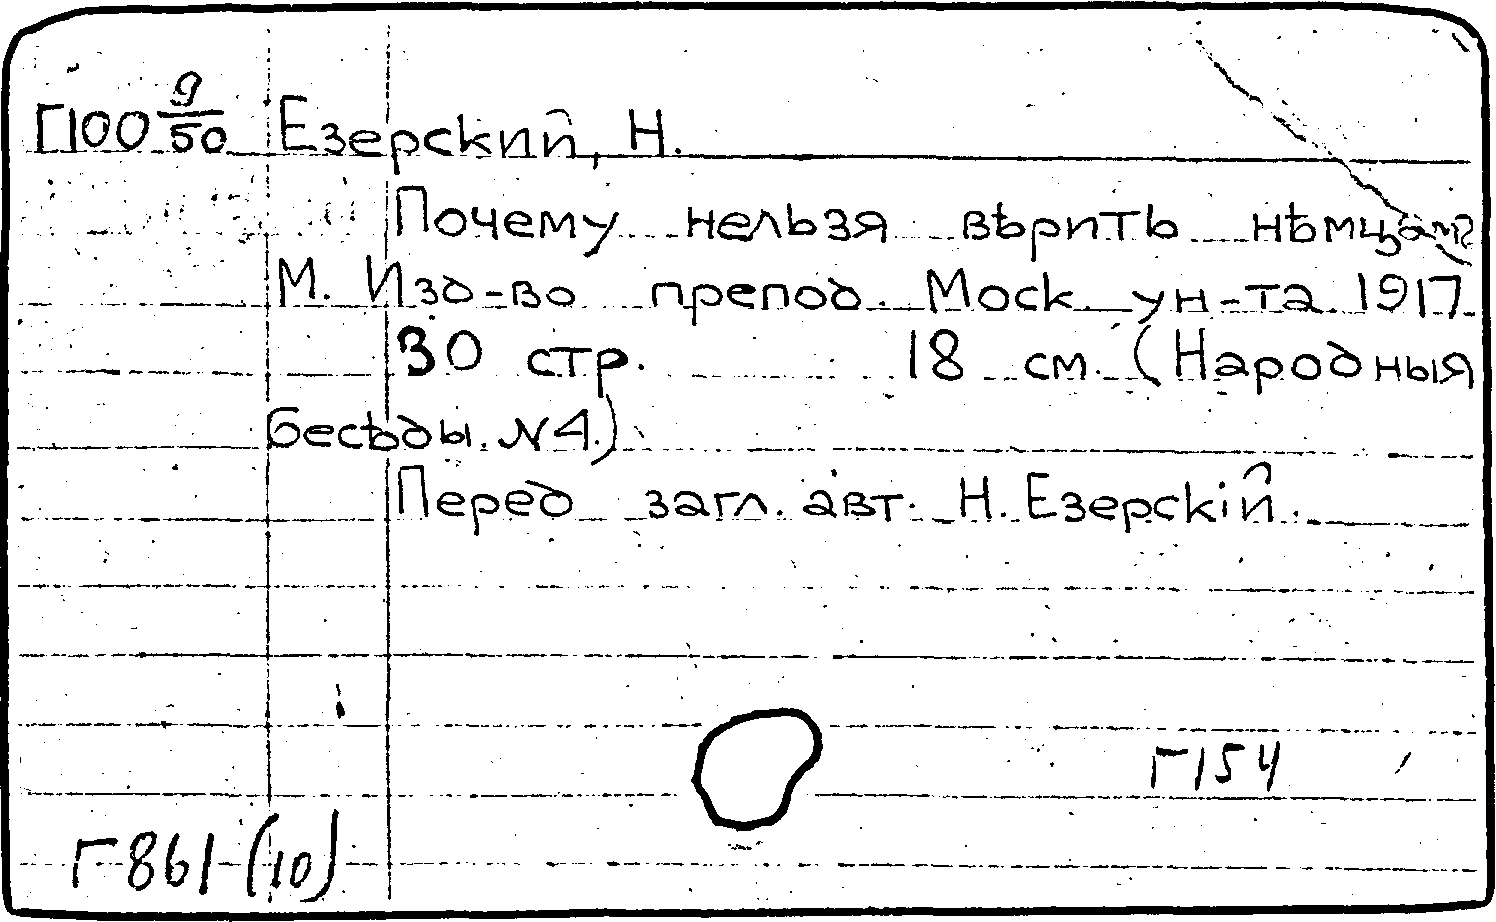 Г100 9/50 Езерский, Н.
Почему нельзя вѣрить нѣмцам?
М. Изд-во препод. Моск. ун-та. 1917.
30 стр. 18 см. (Народныя
бесѣды. N4.)
Перед загл. авт. Н. Езерскій.
Г154
Г861 (10)